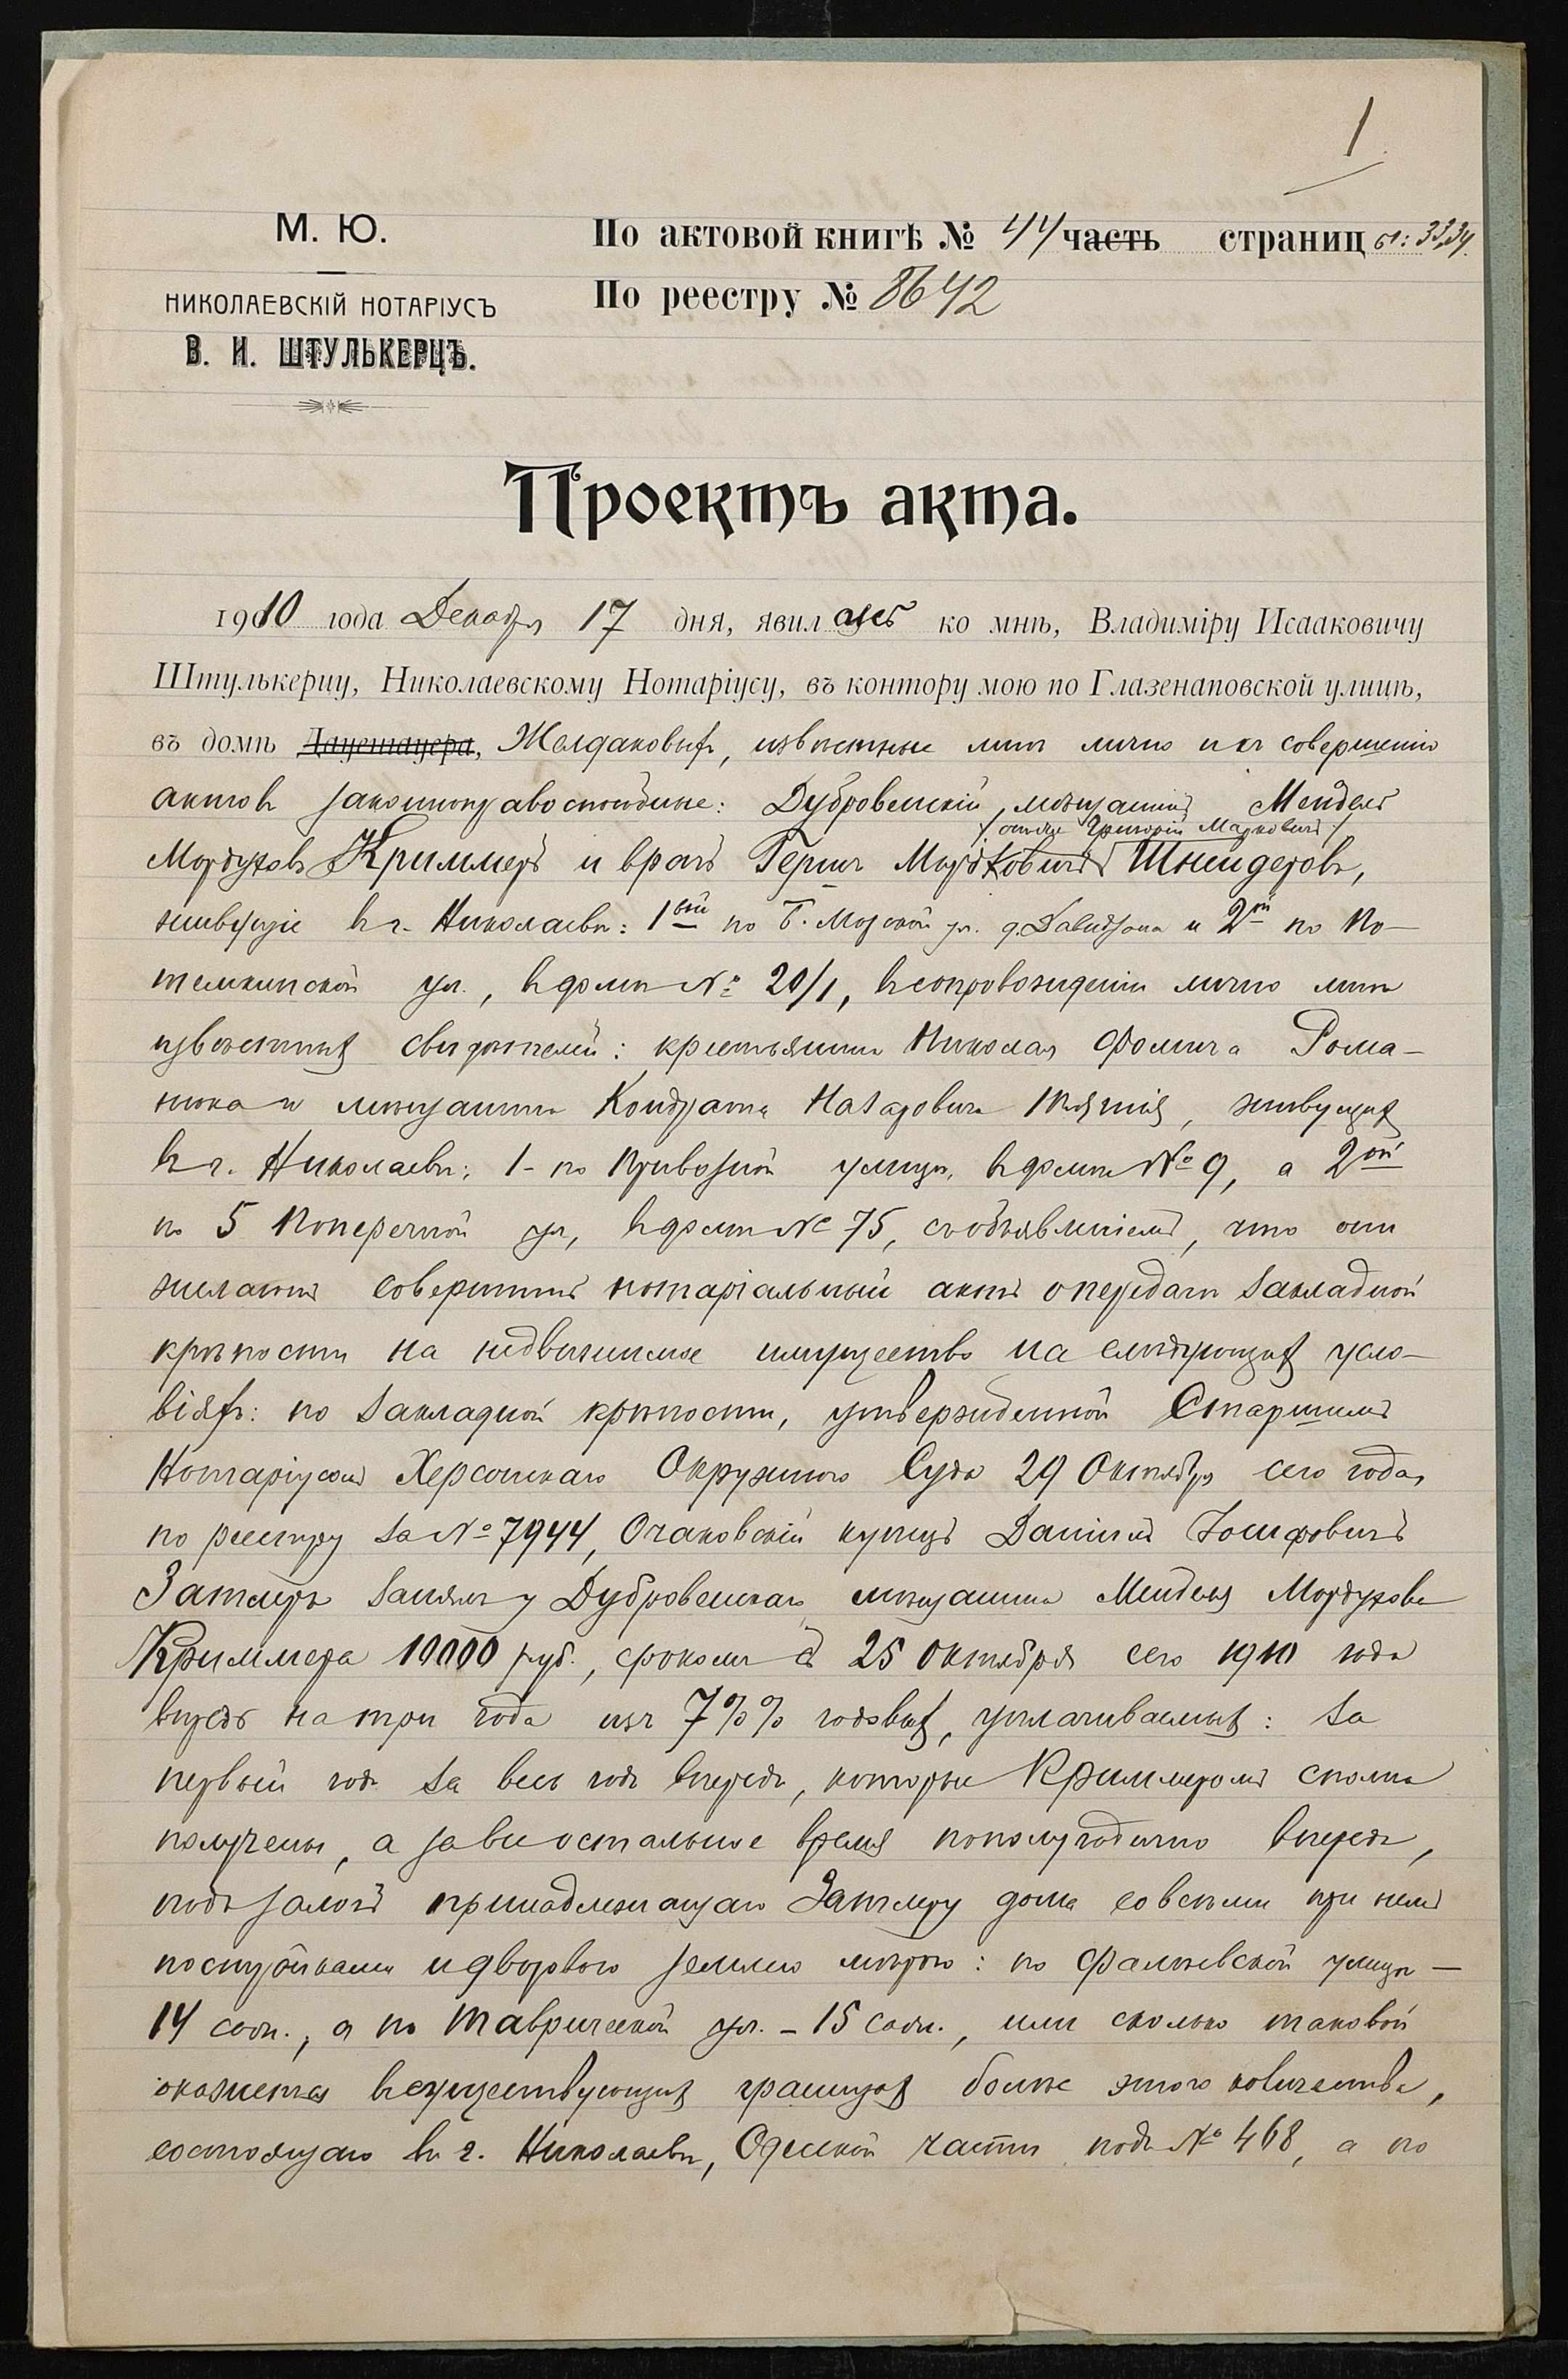 1
М. Ю.
НИКОЛАЕВСКІЙ НОТАРІУСЪ
В. И. ШТУЛЬКЕРЦЪ.
По актовой книгѣ № 44 часть страниц ы: 33,34.
По реестру № 8642
Проектъ акта.
1910 года Декабря 17 дня, явились ко мнѣ, Владиміру Исааковичу
Штулькерцу, Николаевскому Нотаріусу, въ контору мою по Глазенаповской улицѣ,
въ домѣ Дауетауера, Желдаковыхъ, извѣстные мнѣ лично и къ совершенію
актовъ законноправоспособные: Дубровенскій мѣщанинъ Мендель
/онъ же Григорій Марковичъ/
Мордуховъ Криммеръ и врачъ Гершъ Мордковичъ Шнейдеровъ,
живущіе въ г. Николаевѣ: 1ый по Б. Морской ул. д. Давидзона и 2ой по По-
темкинской ул., въ домѣ № 20/1, въ сопровожденіи лично мнѣ
извѣстныхъ свидѣтелей: крестьянина Николая Фомича Рома-
нюка и мѣщанина Кондрата Назаровича, живущихъ
въ г. Николаевѣ: 1- по Привозной улицѣ, въ домѣ № 9, а 2ой
по 5 Поперечной ул, въ домѣ № 75, съ объявленіемъ, что они
желаютъ совершить нотаріальный актъ о передачѣ закладной
крѣпости на недвижимое имущество на слѣдующихъ усло-
віяхъ: по закладной крѣпости, утвержденной Старшимъ
Нотаріусомъ Херсонскаго Окружного Суда 29 Октября сего года,
по реестру за № 7944, Очаковскій купецъ Даніилъ Іосифовичъ
Затлеръ занялъ у Дубровенскаго мѣщанина Менделя Мордухова
Криммера 10000 руб., срокомъ съ 25 Октября сего 1910 года
впредь на три года изъ 7%% годовыхъ, уплачиваемыхъ: за
первый годъ за весь годъ впередъ, которые Криммеромъ сполна
получены, а за все остальное время пополугодично впередъ,
подъ залогъ принадлежащаго Затлеру дома со всѣми при немъ
постройками и дворовою землею мѣрою: по Фалѣевской улицѣ —
14 саж., а по Таврической ул. - 15 саж., или сколько таковой
окажется въ существующихъ границахъ болѣе этого количества,
состоящаго въ г. Николаевѣ, Одесской части подъ № 468, а по